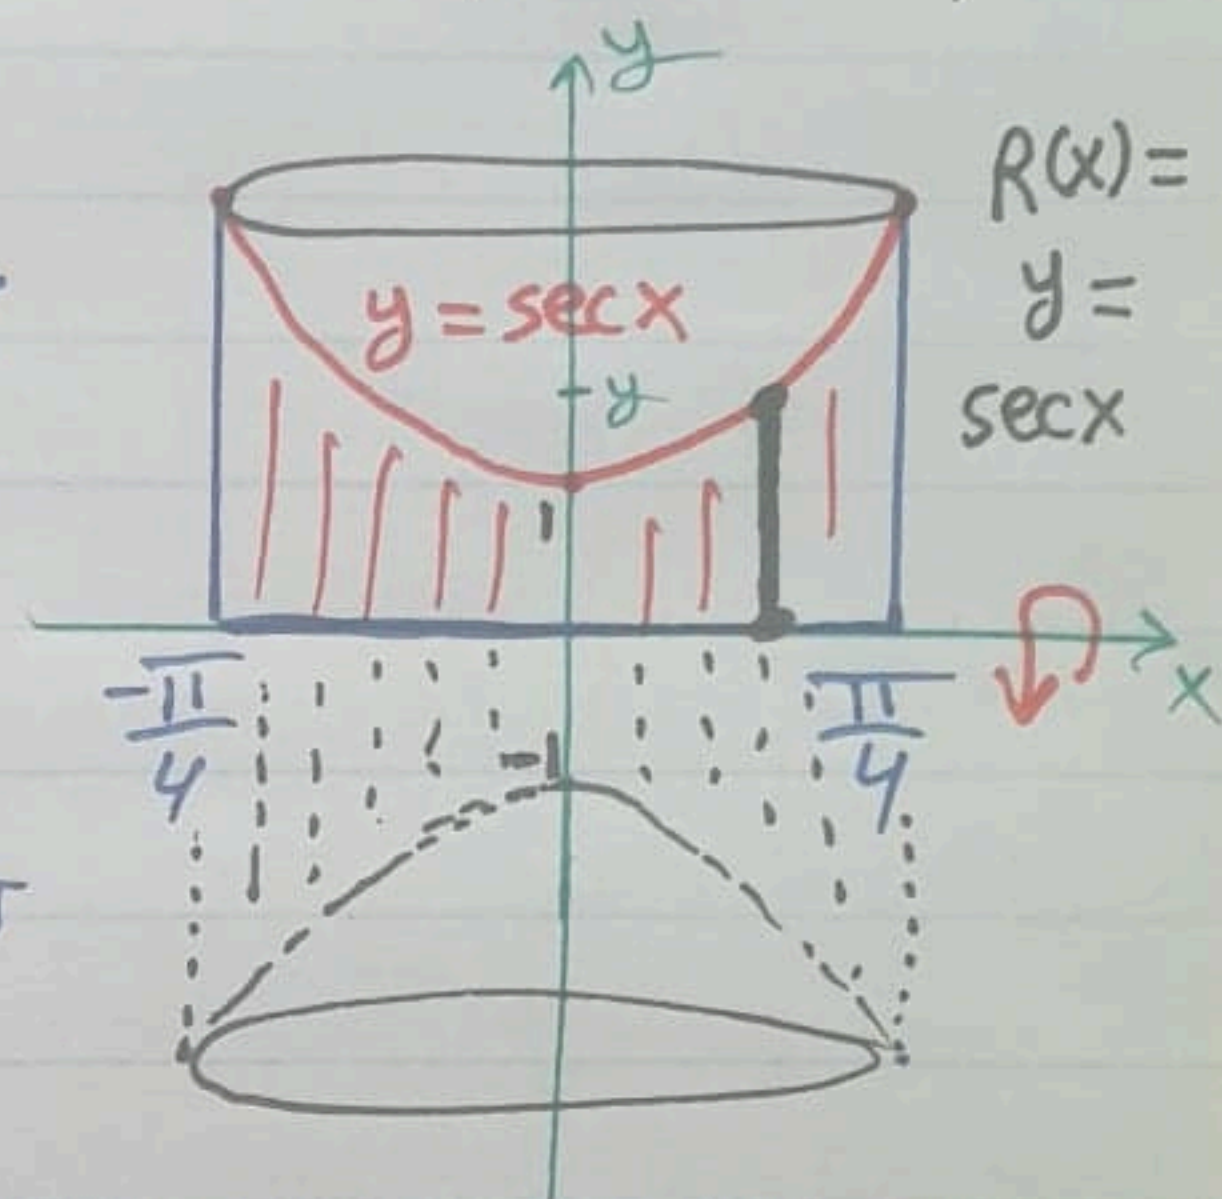 y
R(x) =
y =
sec x
y = sec x
- y
1
x
-π/4
π/4
-1